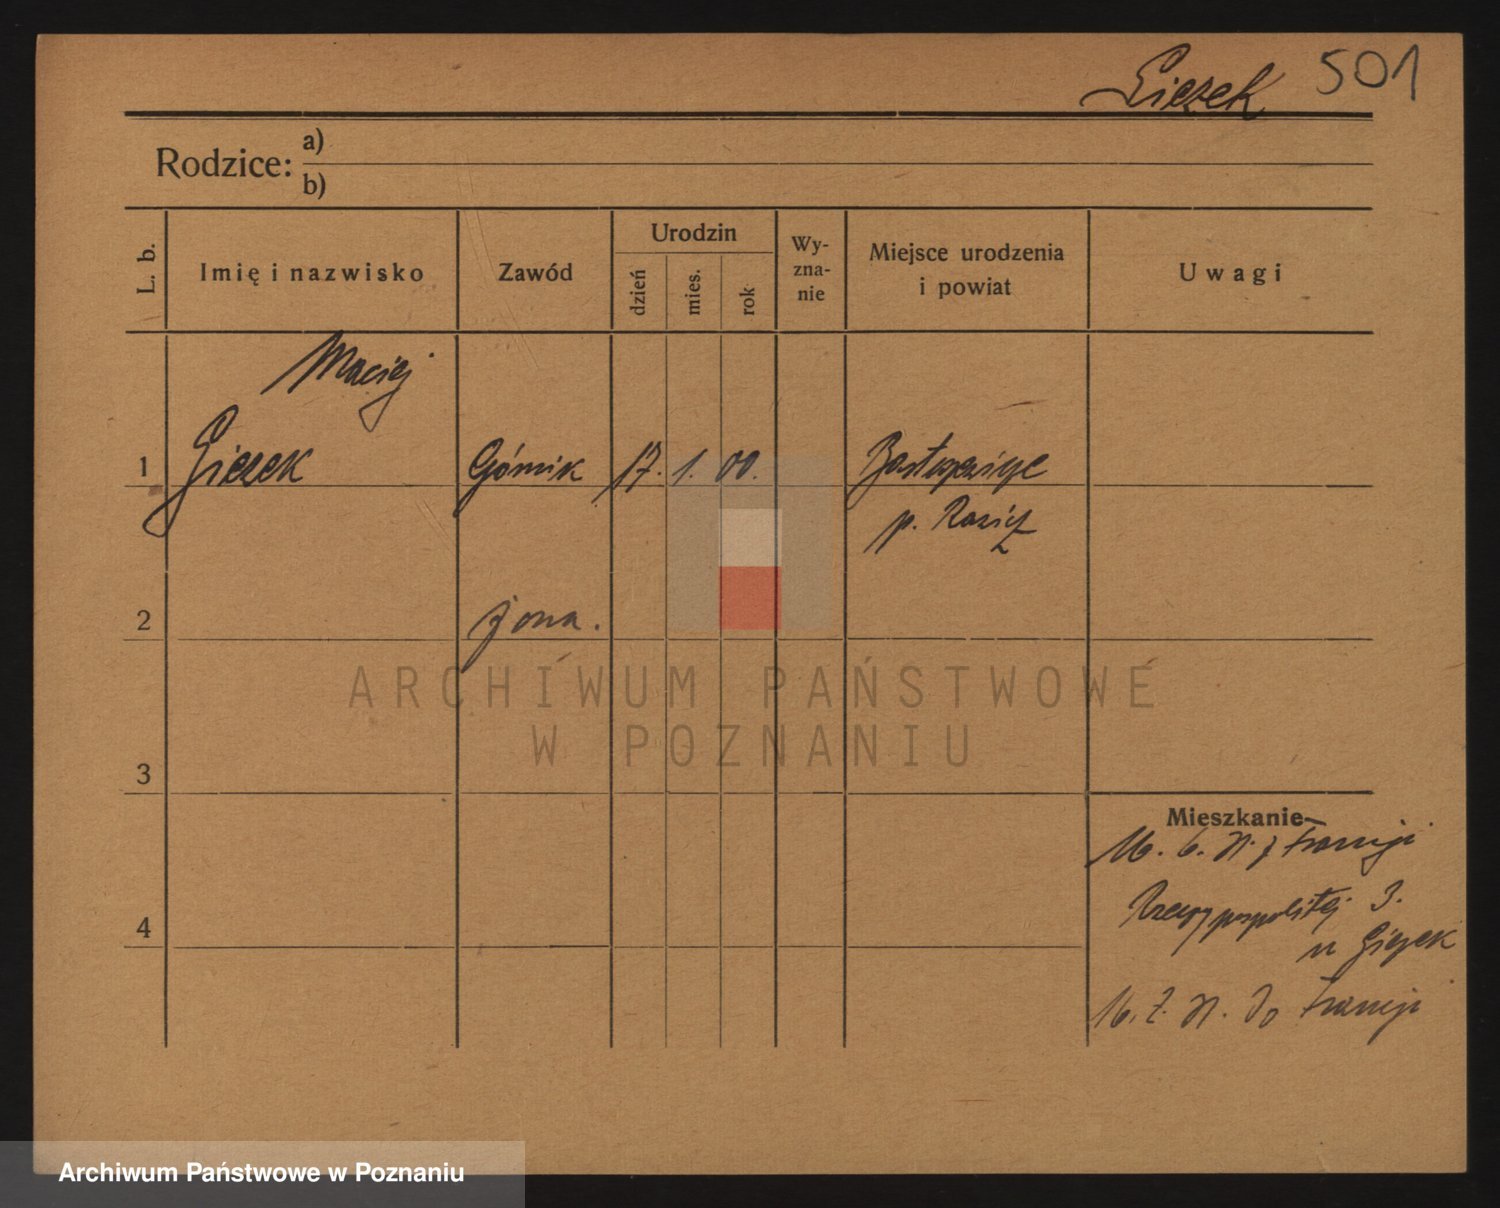 Giezek 501
Rodzice: a)
b)
L. b. Imię i nazwisko Zawód Urodzin dzień mies. rok Wy-
zna-
nie Miejsce urodzenia
i powiat Uwagi
Maciej
1 Giezek Górnik 17. 1. 00.
p.
2 żona.
3
4
Mieszkanie
16. 6. 31. z Francji
Rzeczypospolitej 3.
u Giezek
do Francji
ARCHIWUM PAŃSTWOWE
W POZNANIU
Archiwum Państwowe w Poznaniu